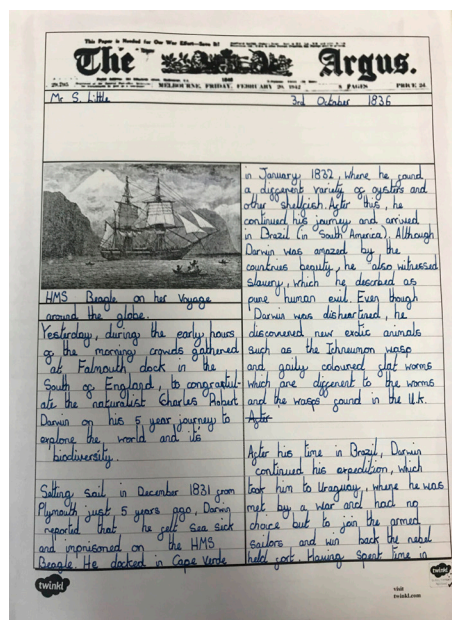 This Paper is Needed for Our War Effort—Save It!
The Argus.
MELBOURNE, FRIDAY, FEBRUARY 20, 1942
8 PAGES
PRICE 2d.
Mr S. Little
3rd October 1836
HMS Beagle on her Voyage
around the globe.
Yesterday, during the early hours
of the morning crowds gathered
at Falmouth dock in the
South of England, to congratul-
ate the naturalist Charles Robert
Darwin on his 5 year journey to
explore the world and it's
biodiversity.
Setting sail in December 1831 from
Plymouth just 5 years ago, Darwin
reported that he felt sea sick
and imprisoned on the HMS
Beagle. He docked in Cape Verde
in January 1832, where he found
a different variety of oysters and
other shellfish. After this, he
continued his journey and arrived
in Brazil (in South America). Although
Darwin was amazed by the
countries beauty, he also witnessed
slavery, which he described as
pure human evil. Even though
Darwin was disheartened, he
discovered new exotic animals
such as the Ichneumon wasp
and gaily coloured flat worms
which are different to the worms
and the wasps found in the U.K.
After
After his time in Brazil, Darwin
continued his expedition, which
took him to Uraguay, where he was
met by a war and had no
choice but to join the armed
sailors and win back the rebel
held fort. Having spent time in
twinkl
visit
twinkl.com
twinkl